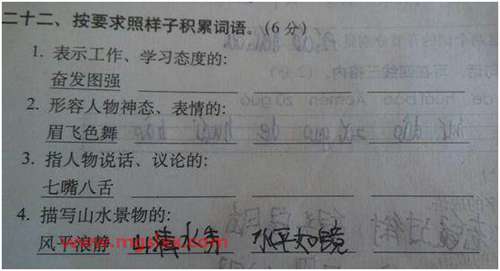 二十二、按要求照样子积累词语。(6 分)
1. 表示工作、学习态度的:
奋发图强
2. 形容人物神态、表情的:
眉飞色舞
3. 指人物说话、议论的:
七嘴八舌
4. 描写山水景物的:
风平浪静 山清水秀 水平如镜